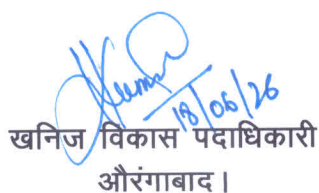 18/06/26
खनिज विकास पदाधिकारी
औरंगाबाद।